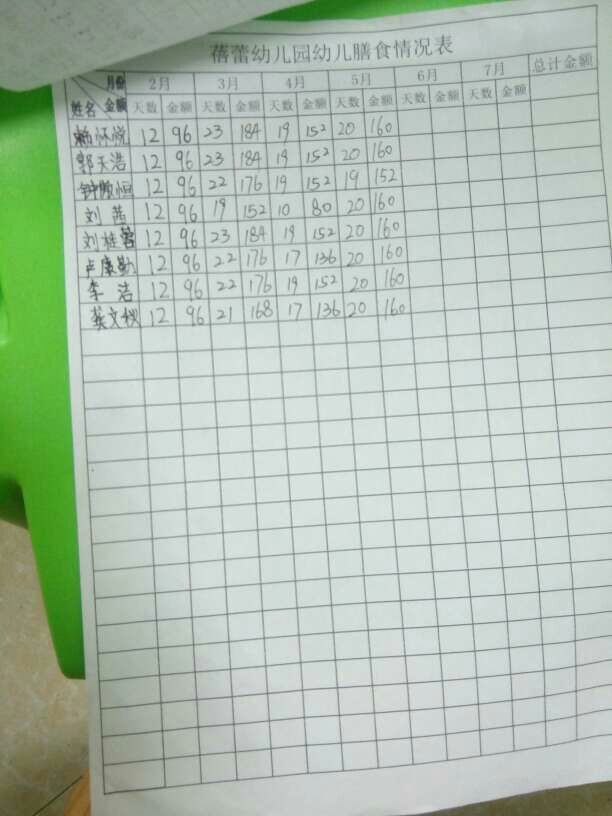 蓓蕾幼儿园幼儿膳食情况表
月份 2月 3月 4月 5月 6月 7月 总计金额
姓名 金额 天数 金额 天数 金额 天数 金额 天数 金额 天数 金额 天数 金额
赖怀悦 12 96 23 184 19 152 20 160
郭天浩 12 96 23 184 19 152 20 160
钟 恒 12 96 22 176 19 152 19 152
刘茜 12 96 19 152 10 80 20 160
刘桂蓉 12 96 23 184 19 152 20 160
卢康勤 12 96 22 176 17 136 20 160
李洁 12 96 22 176 19 152 20 160
龚文 12 96 21 168 17 136 20 160